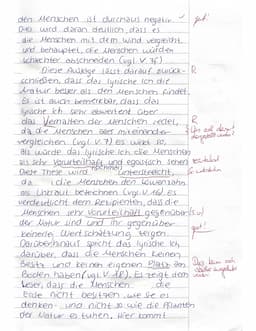 den Menschen ist durchaus negativ.
Dies wird daran deutlich, dass es
die Menschen mit dem Wind vergleicht
und behauptet, die Menschen würden
schlechter abschneiden (vgl. V. 3f).
Diese Aussage lässt darauf zurück-
schließen, dass das lyrische Ich die
Natur besser als den Menschen findet.
Es ist auch bemerkbar, dass das
lyrische Ich sehr abwertend über
das Verhalten der Menschen redet,
da die Menschen miteinander
vergleichen (vgl. V. 7) es wirkt so,
als würde das lyrische Ich die Menschen
als sehr Vorurteilhaft und egoistisch sehen.
Diese These wird unterstreicht,
da die Menschen den Löwenzahn
als Unkraut bezeichnen (vgl. V. 16) es
verdeutlicht dem Rezipienten, dass die
Menschen sehr Vorurteilhaft gegenüber
der Natur sind und ihr gegenüber
keinerlei Wertschätzung zeigen.
Darüberhinaus spricht das lyrische Ich
darüber, dass die Menschen keinen
Besitz und keinen eigenen Platz am
Boden haben (vgl. V. 18). Es zeigt dem
Leser, dass die Menschen die
Erde nicht besitzen, wie sie es
denken und nicht so wie die Pflanzen
der Natur es tuhen. Hier kommt
gut!
R
R
gut!